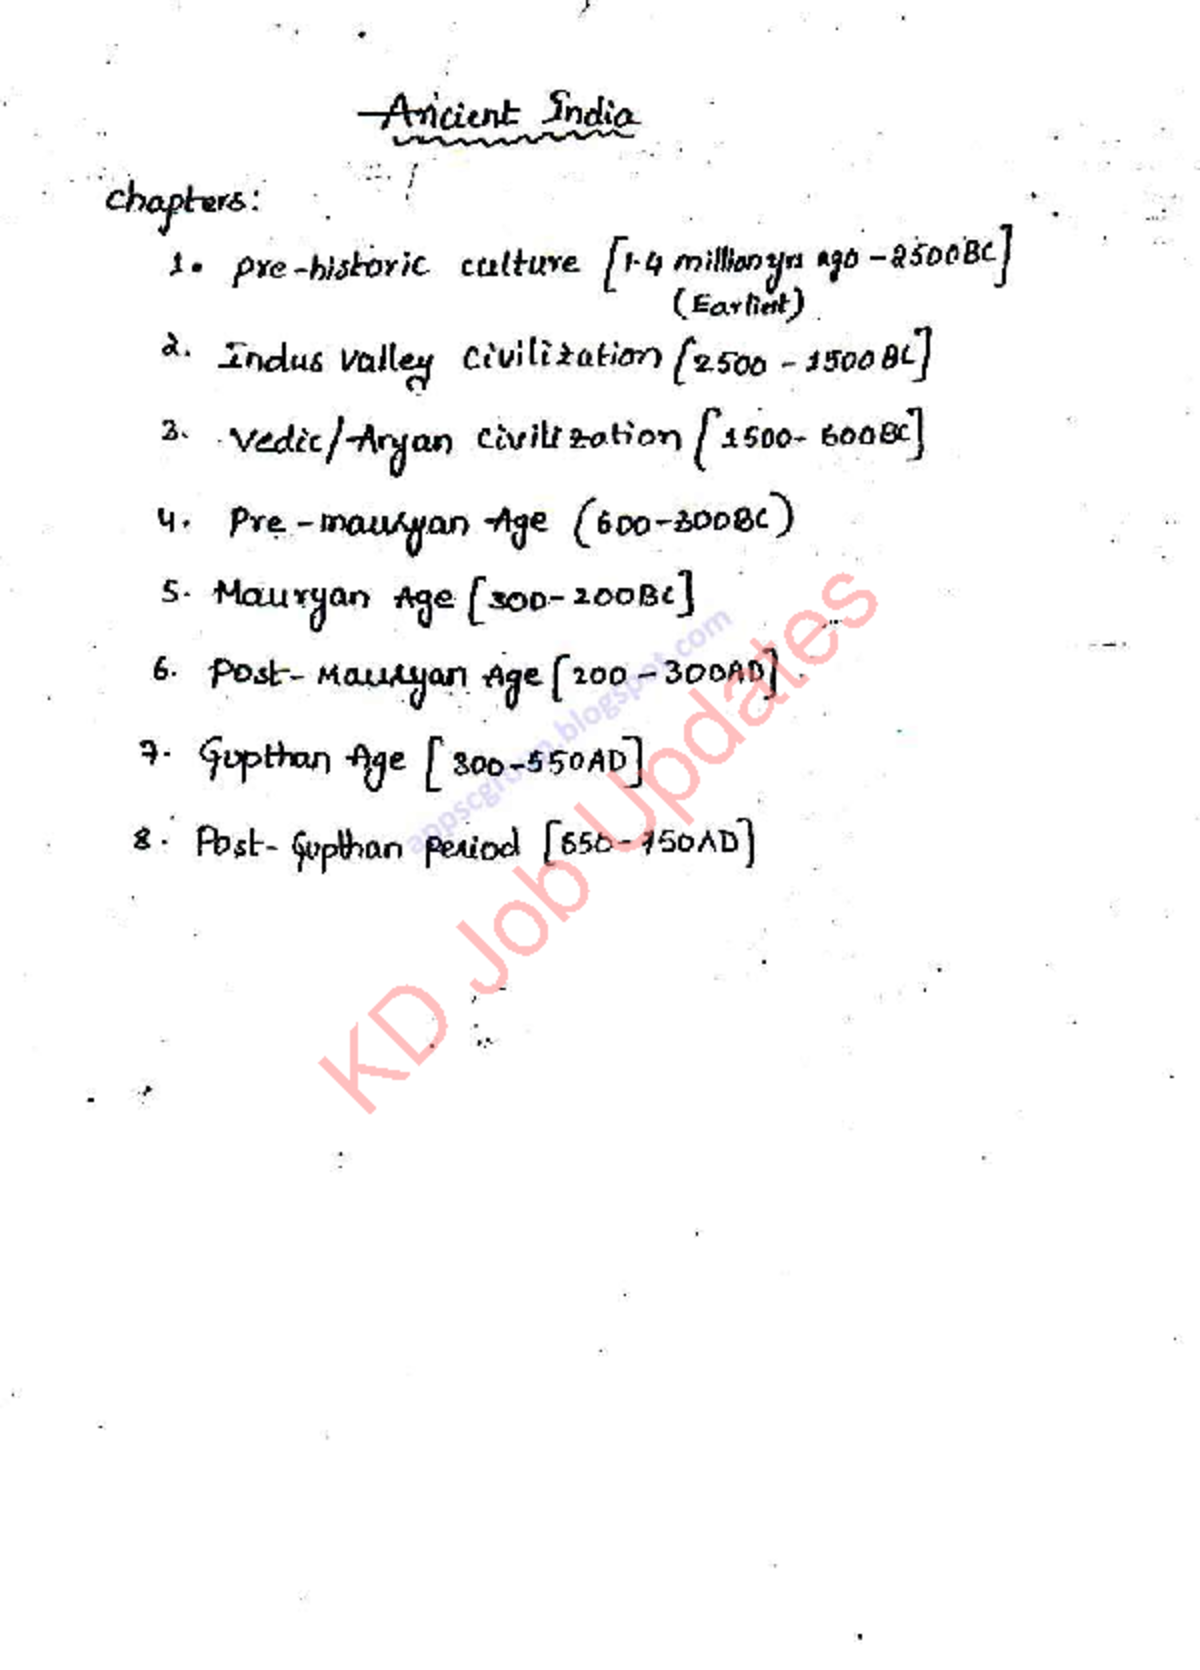 Ancient India
Chapters:
1. Pre-historic culture [1.4 million yrs ago - 2500BC]
(Earliest)
2. Indus Valley Civilization [2500 - 1500BC]
3. Vedic/Aryan Civilization [1500 - 600BC]
4. Pre-mauryan Age (600-300BC)
5. Mauryan Age [300-200BC]
6. Post-Mauryan Age [200 - 300AD]
7. Gupthan Age [300-550AD]
8. Post-Gupthan Period [550-750AD]
appscgroup.blogspot.com
KD Job Updates